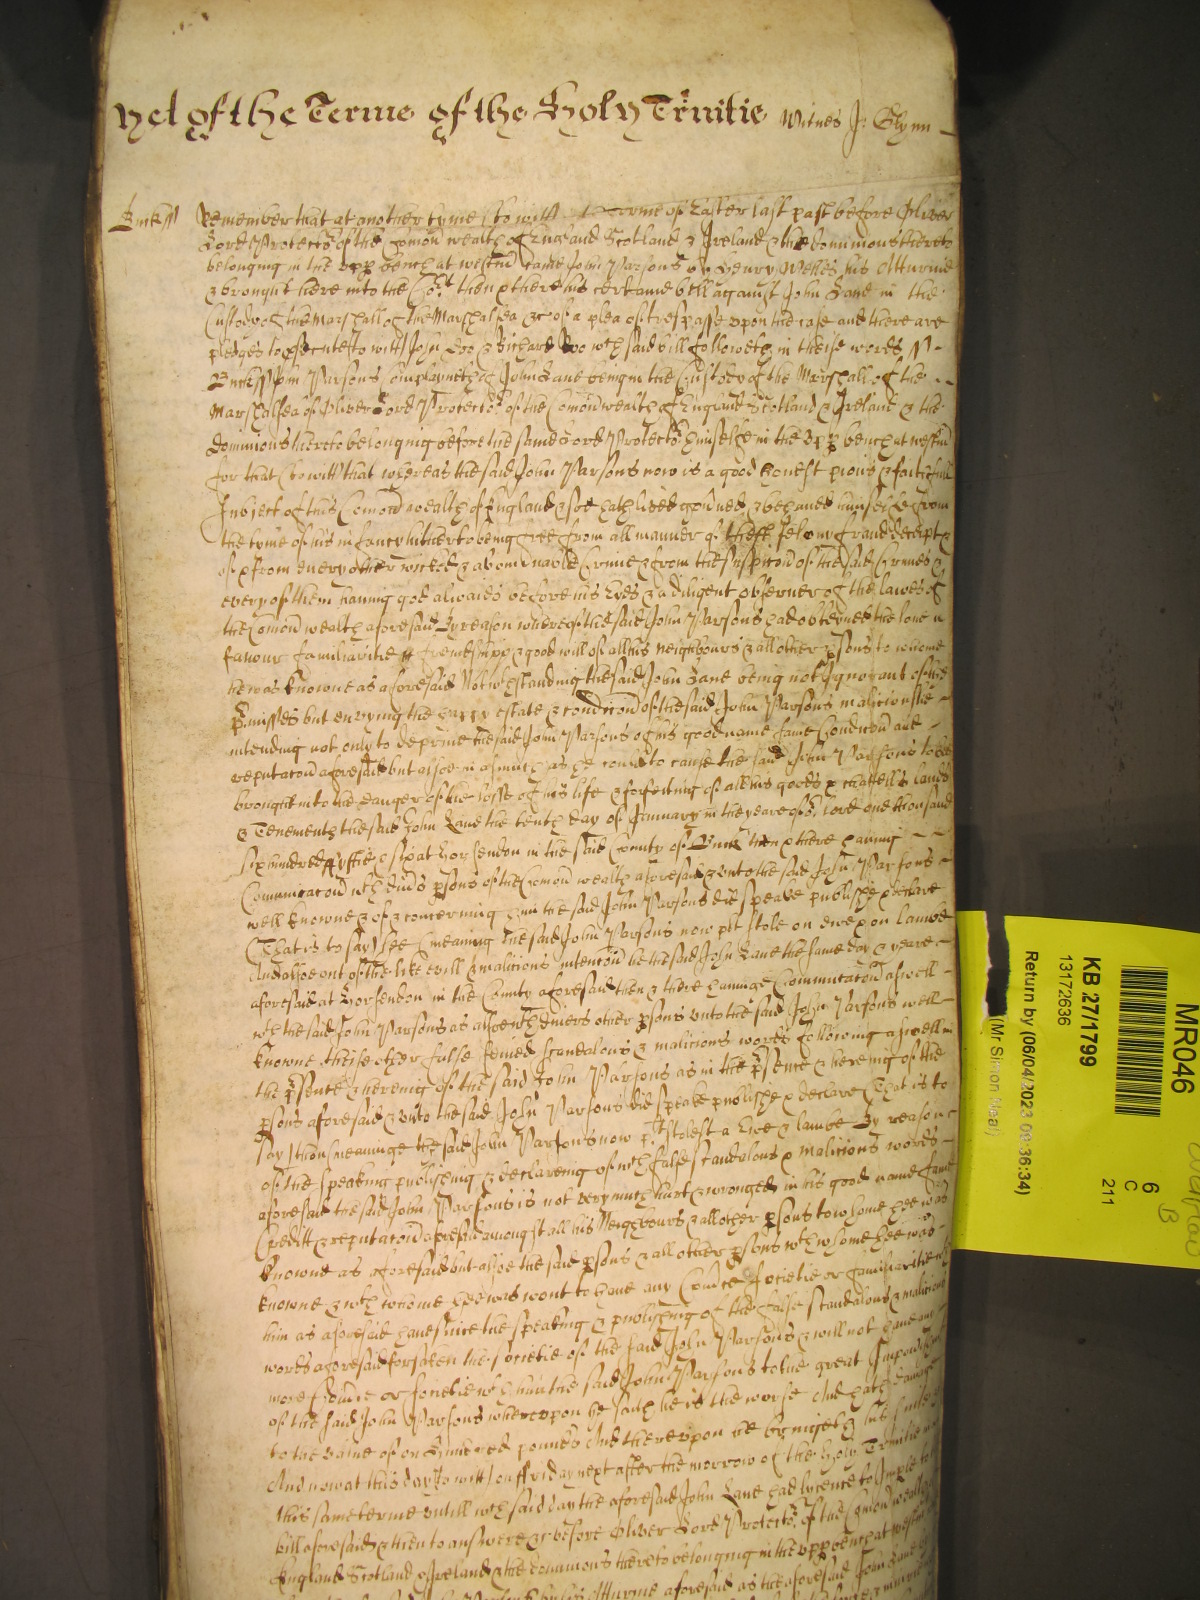 yet of the Terme of the Holy Trinitie Witnes J: Glynn
Buck ss Remember that at another tyme (to witt) terme of Easter last past before Oliver
Lord Protector of the Comon wealth of England Scotland & Ireland & the dominions thereto
belonging in the upp bench at westm came John Parsons by Henry Welles his Atturnie
& brought here into the Cort then & there his certaine bill against John Lane in the
Custody of the Marshall of the Marshalsea &c of a plea of trespasse upon the case and there are
pledges to psecute to witt John Doo & Richard Roo wch said bill followeth in theise words ss
Buck ss John Parsons complayneth of John Lane being in the Custody of the Marshall of the
Marshalsea of Oliver Lord Protector of the Comon wealth of England Scotland & Ireland & the
dominions thereto belonging before the same Lord Protector himselfe in the upp bench at westm
for that (to witt) that whereas the said John Parsons now is a good honest pious & faithfull
subject of this Comon wealth of England & soe hath lived governed & behaved himselfe from
the tyme of his infancy hitherto being free from all manner of theft felony fraud deceipt &
of & from every other wicked & abominable Crime & from the suspicon of the said Crymes &
every of them having god alwaies before his Eyes & a diligent observer of the lawes of
the Comon wealth aforesaid By reason whereof the said John Parsons had observed the love
favour familiaritie freindshipp & good will of all his neighbours & all other psons to whome
he was knowne as aforesaid Notwthstanding the said John Lane being not Ignorant of the
pmisses but envying the happy estate & condicon of the said John Parsons maliciouslie
intending not only to deprive the said John Parsons of his good name fame Condicon and
reputacon aforesaid but alsoe in asmuch as he could to cause the said John Parsons to be
brought into the danger of the losse of his life & forfeiting of all his goods & chattells lands
& Tenements the said John Lane the tenth day of January in the yeare of or lord one thousand
six hundred fyftie & six at Horsendon in the said County of Buck then & there having
Comunicacon wth divs psons of the Comon wealth aforesaid & unto the said John Parsons
well knowne & of & concerning him the said John Parsons did speake publishe & declare
(That is to say) hee (meaning the said John Parsons now plt) stole an ewe & on lambe
And alsoe out of the like evill & malicious intencon he the said John Lane the same day & yeare
aforesaid at Horsendon in the County aforesaid then & there haveing Communicacon aswell
wth the said John Parsons as alsoe wth divers other psons unto the said John Parsons well
knowne theise other false feined scandalous & malicious words following aswell in
the psence & hereing of the said John Parsons as in the psence & hereing of the
psons aforesaid & unto the said John Parsons did speake publishe & declare (That is to
say) thou (meaninge the said John Parsons now plt) stolest a Ewe & lambe By reason
of the speaking publishing & declareing of wch false scandalous & malicious words
aforesaid the said John Parsons is not very much hurt & wronged in his good name fame
Creditt & reputacon aforesaid amongst all his Neighbours & all other psons to whome hee was
knowne as aforesaid but alsoe the said psons & all other psons wth whome hee was
knowne & wth whome hee was wont to have any Comerce societie or familiaritie wth
him as aforesaid have since the speaking & publishing of the false scandalous & malicious
words aforesaid forsaken the societie of the said John Parsons & will not have any
more Comerce or societie wth him the said John Parsons to the great
of the said John Parsons whereupon he saith he is the worse And hath damage
to the value of on hundred pounds And thereupon he bringeth his suite &c
And now at this day (to witt) on ffriday next after the morrow of the holy Trinitie in
this same terme untill wch said day the aforesaid John Lane had lycence to Imple to
bill aforesaid & then to answere &c before Oliver Lord Protector of the Comon wealth
England Scotland & Ireland & the dominions thereto belonging in the upp bench at westm
Atturnie aforesaid as the aforesaid John Lane
MR046
KB 27/1799
13172636
Return by (06/04/2023 09:36:34)
(Mr Simon Neal)
6
C
211
B